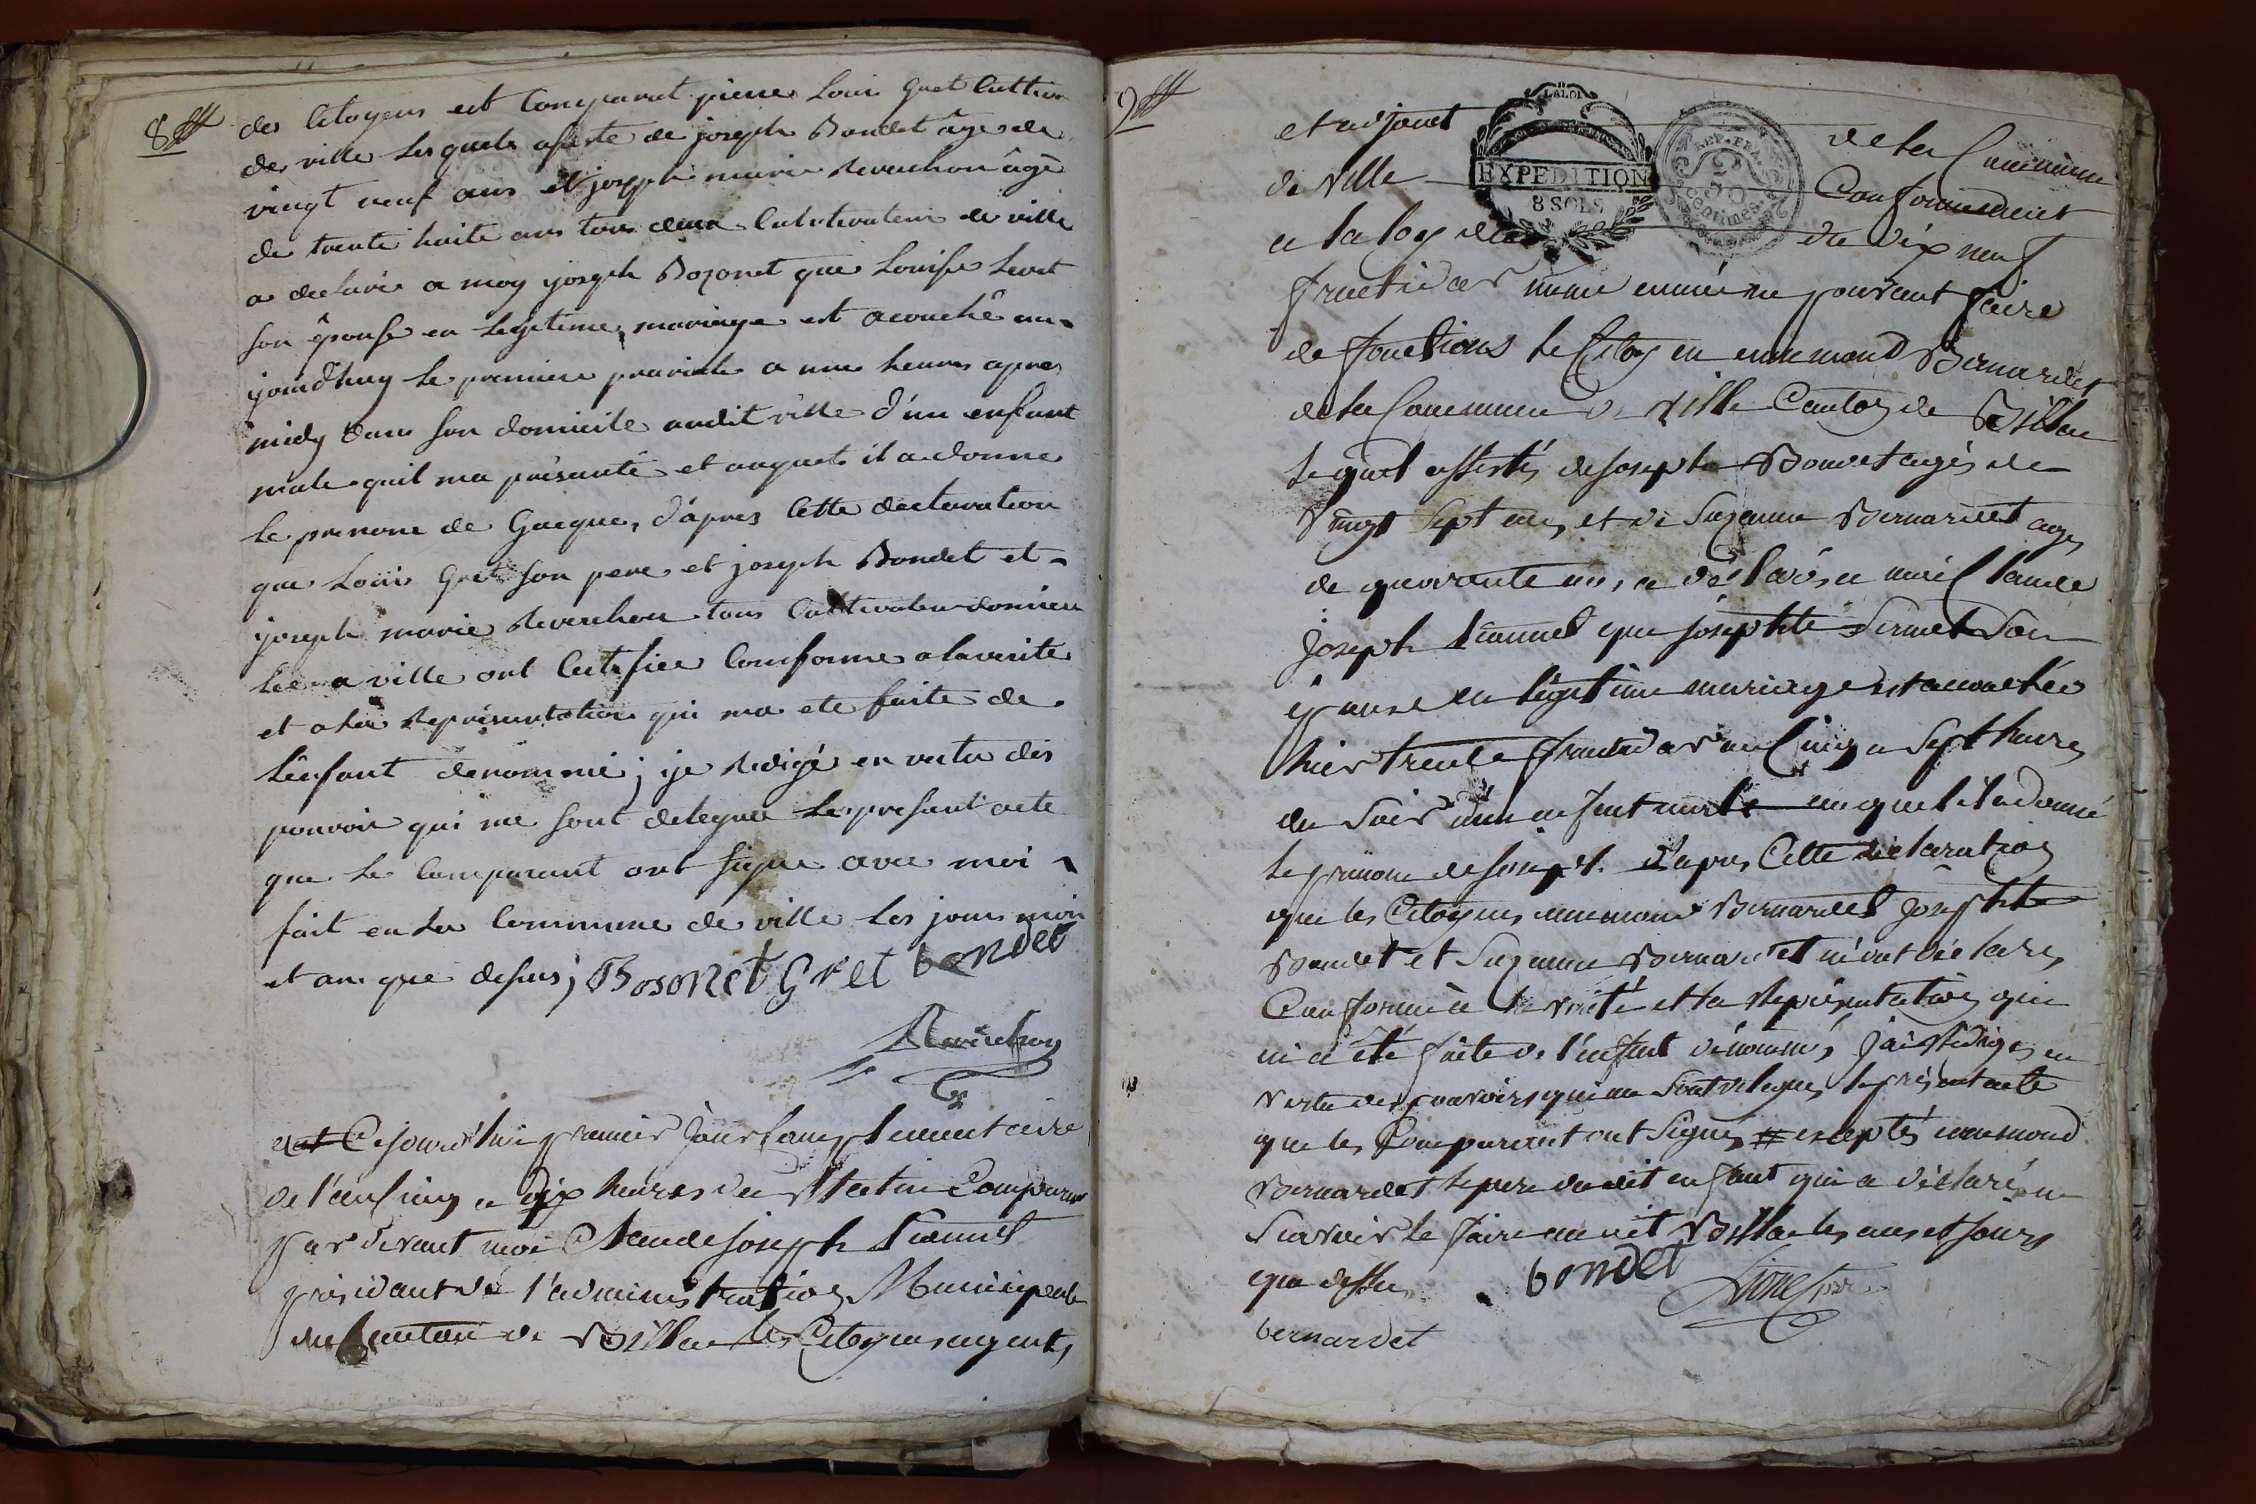 8
des Citoyens est Comparut pierre Louis Gret Cultiva
de ville lesquels asisté de joseph Bondet âges de
vingt neuf ans et joseph marie Reverchon âgé
de trente huite ans tous deux Cultivateur de ville
a declaré a moy joseph Bozonet que Louise
son épouse en legitime mariage est acouchê au-
jourd'huy le premiere prairiale a une heures apres
midy dans son domicile audit ville d'un enfant
male quil ma présanté et auquel il a donne
le prenom de Gacque, d'apres Cette declaration
que Loüis Gret son pere et joseph Bondet et-
joseph marie Reverchon tous Cultivateur domicie
liée a ville ont Certifiée Comforme a la verite
et a la Représentation qui ma ete faite de
l'enfant denommé; je Redigé en vertu des
pouvoir qui me sont delegué le present acte
que le Comparant ont signe avec moi
fait en la Commune de ville les jours mois
et an que desus; Bosonet Gret bondet
Reverchon
Cejourd'hui premier jour Complementaire
de l'an Cinq a dix heures du Matin Comparur
par devant moi Claude Joseph
présidant de l'administration Municipale
du Canton de Bellue les Citoyens agent,
9
et adjoint de la Commune
LA LOI
EXPEDITION
8 SOLS
REP. FRA.
centimes
de Ville Conformement
a la loy du dix neuf
fructidor meme année ne pouvant faire
de fonctions le Citoyen ennemond Bernardet
de la Commune de Ville Canton de Bellue
lequel assistés de Joseph Bondet agés de
Vingt Sept ans et de Suzanne Bernardet agés
de quarante ans, a déclaré a moi Claude
Joseph que Josephte son
épouse en légitime mariage est acouchée
hier trente fructidor an Cinq a Sept heures
du Soir d'un enfant male auquel il a donné
le prénom de Joseph. d'apres Cette déclaration
que les Citoyens ennemond Bernardet Josephte
Bondet et Suzanne Bernardet m'ont déclaré,
Conforme à la vérité et la Représentation qui
m'a été faite de l'enfant dénommé, J'ai Rédigé en
vertu des pouvoirs qui me sont délégués le présent acte
que les Comparant ont Signés exceptés ennemond
Bernardet le pere dudit enfant qui a déclaré ne
Savoir le faire audit Bellue les an et jours
que dessus. bondet
bernardet